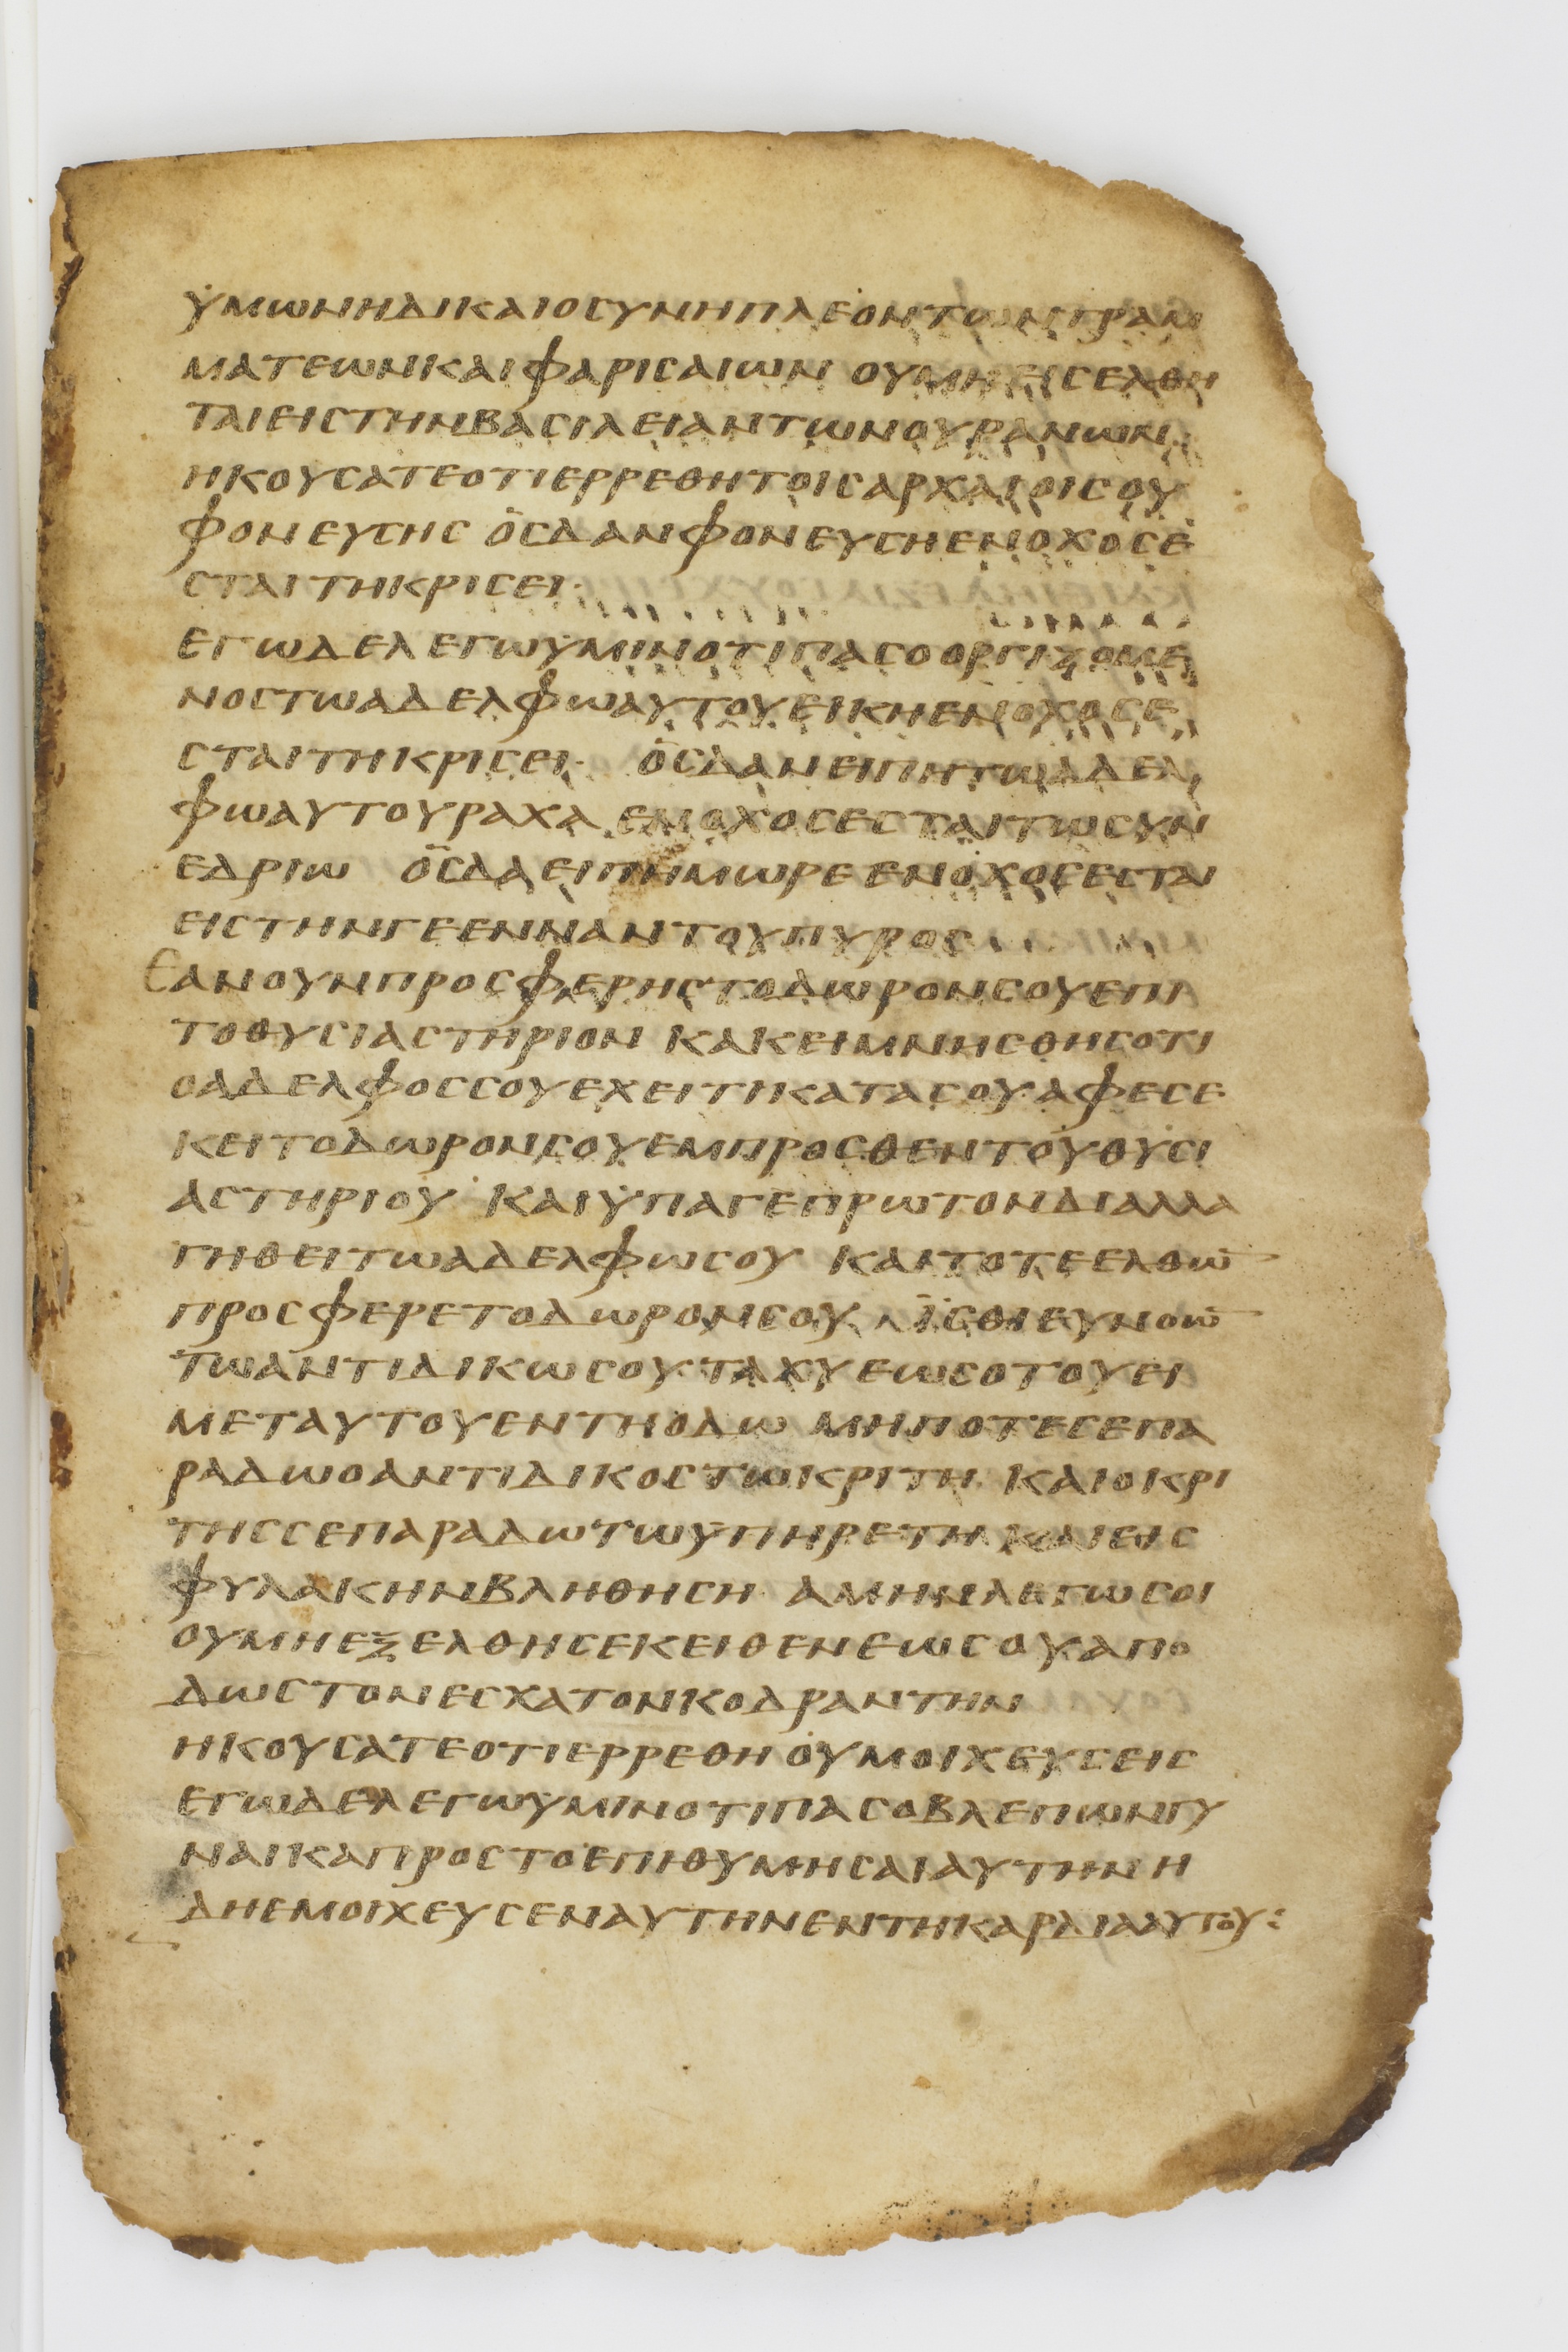 ϋμωνηδικαιοσυνηπλεοντωνγραμ
ματεωνκαιφαρισαιων ουμηεισελθη
ταιειστηνβασιλειαντωνουρανων·
ηκουσατεοτιερρεθητοισαρχαιοισου
φονευσησ ὃσδανφονευσηενοχοσε
σταιτηκρισει·
εγωδελεγωϋμινοτιπασοοργιζομε
νοστωαδελφωαυτουεικηενοχοσε
σταιτηκρισει· ὃσδανειπητωαδελ
φωαυτουραχα ενοχοσεσταιτωσυν
εδριω ὃσδαειπημωρεενοχοσεσται
ειστηνγεενναντουπυροσ
Εανουνπροσφερηστοδωρονσουεπι
τοθυσιαστηριον κακειμνησθησοτι
οαδελφοσσουεχειτικατασουαφεσε
κειτοδωρονσουεμπροσθεντουθυσι
αστηριου· καιϋπαγεπρωτονδιαλλα
γηθειτωαδελφωσου καιτοτεελθω̅
προσφερετοδωρονσου ϊσθιευνοω̅
τωαντιδικωσουταχυεωσοτουει
μεταυτουεντηοδω μηποτεσεπα
ραδωοαντιδικοστωκριτη καιοκρι
τησσεπαραδωτωϋπηρετη καιεισ
φυλακηνβληθηση· αμηνλεγωσοι
ουμηεξελθησεκειθενεωσουαπο
δωστονεσχατονκοδραντην
ηκουσατεοτιερρεθηουμοιχευσεισ
εγωδελεγωϋμινοτιπασοβλεπωνγυ
ναικαπροστοεπιθυμησαιαυτηνη
δηεμοιχευσεναυτηνεντηκαρδιααυτου: